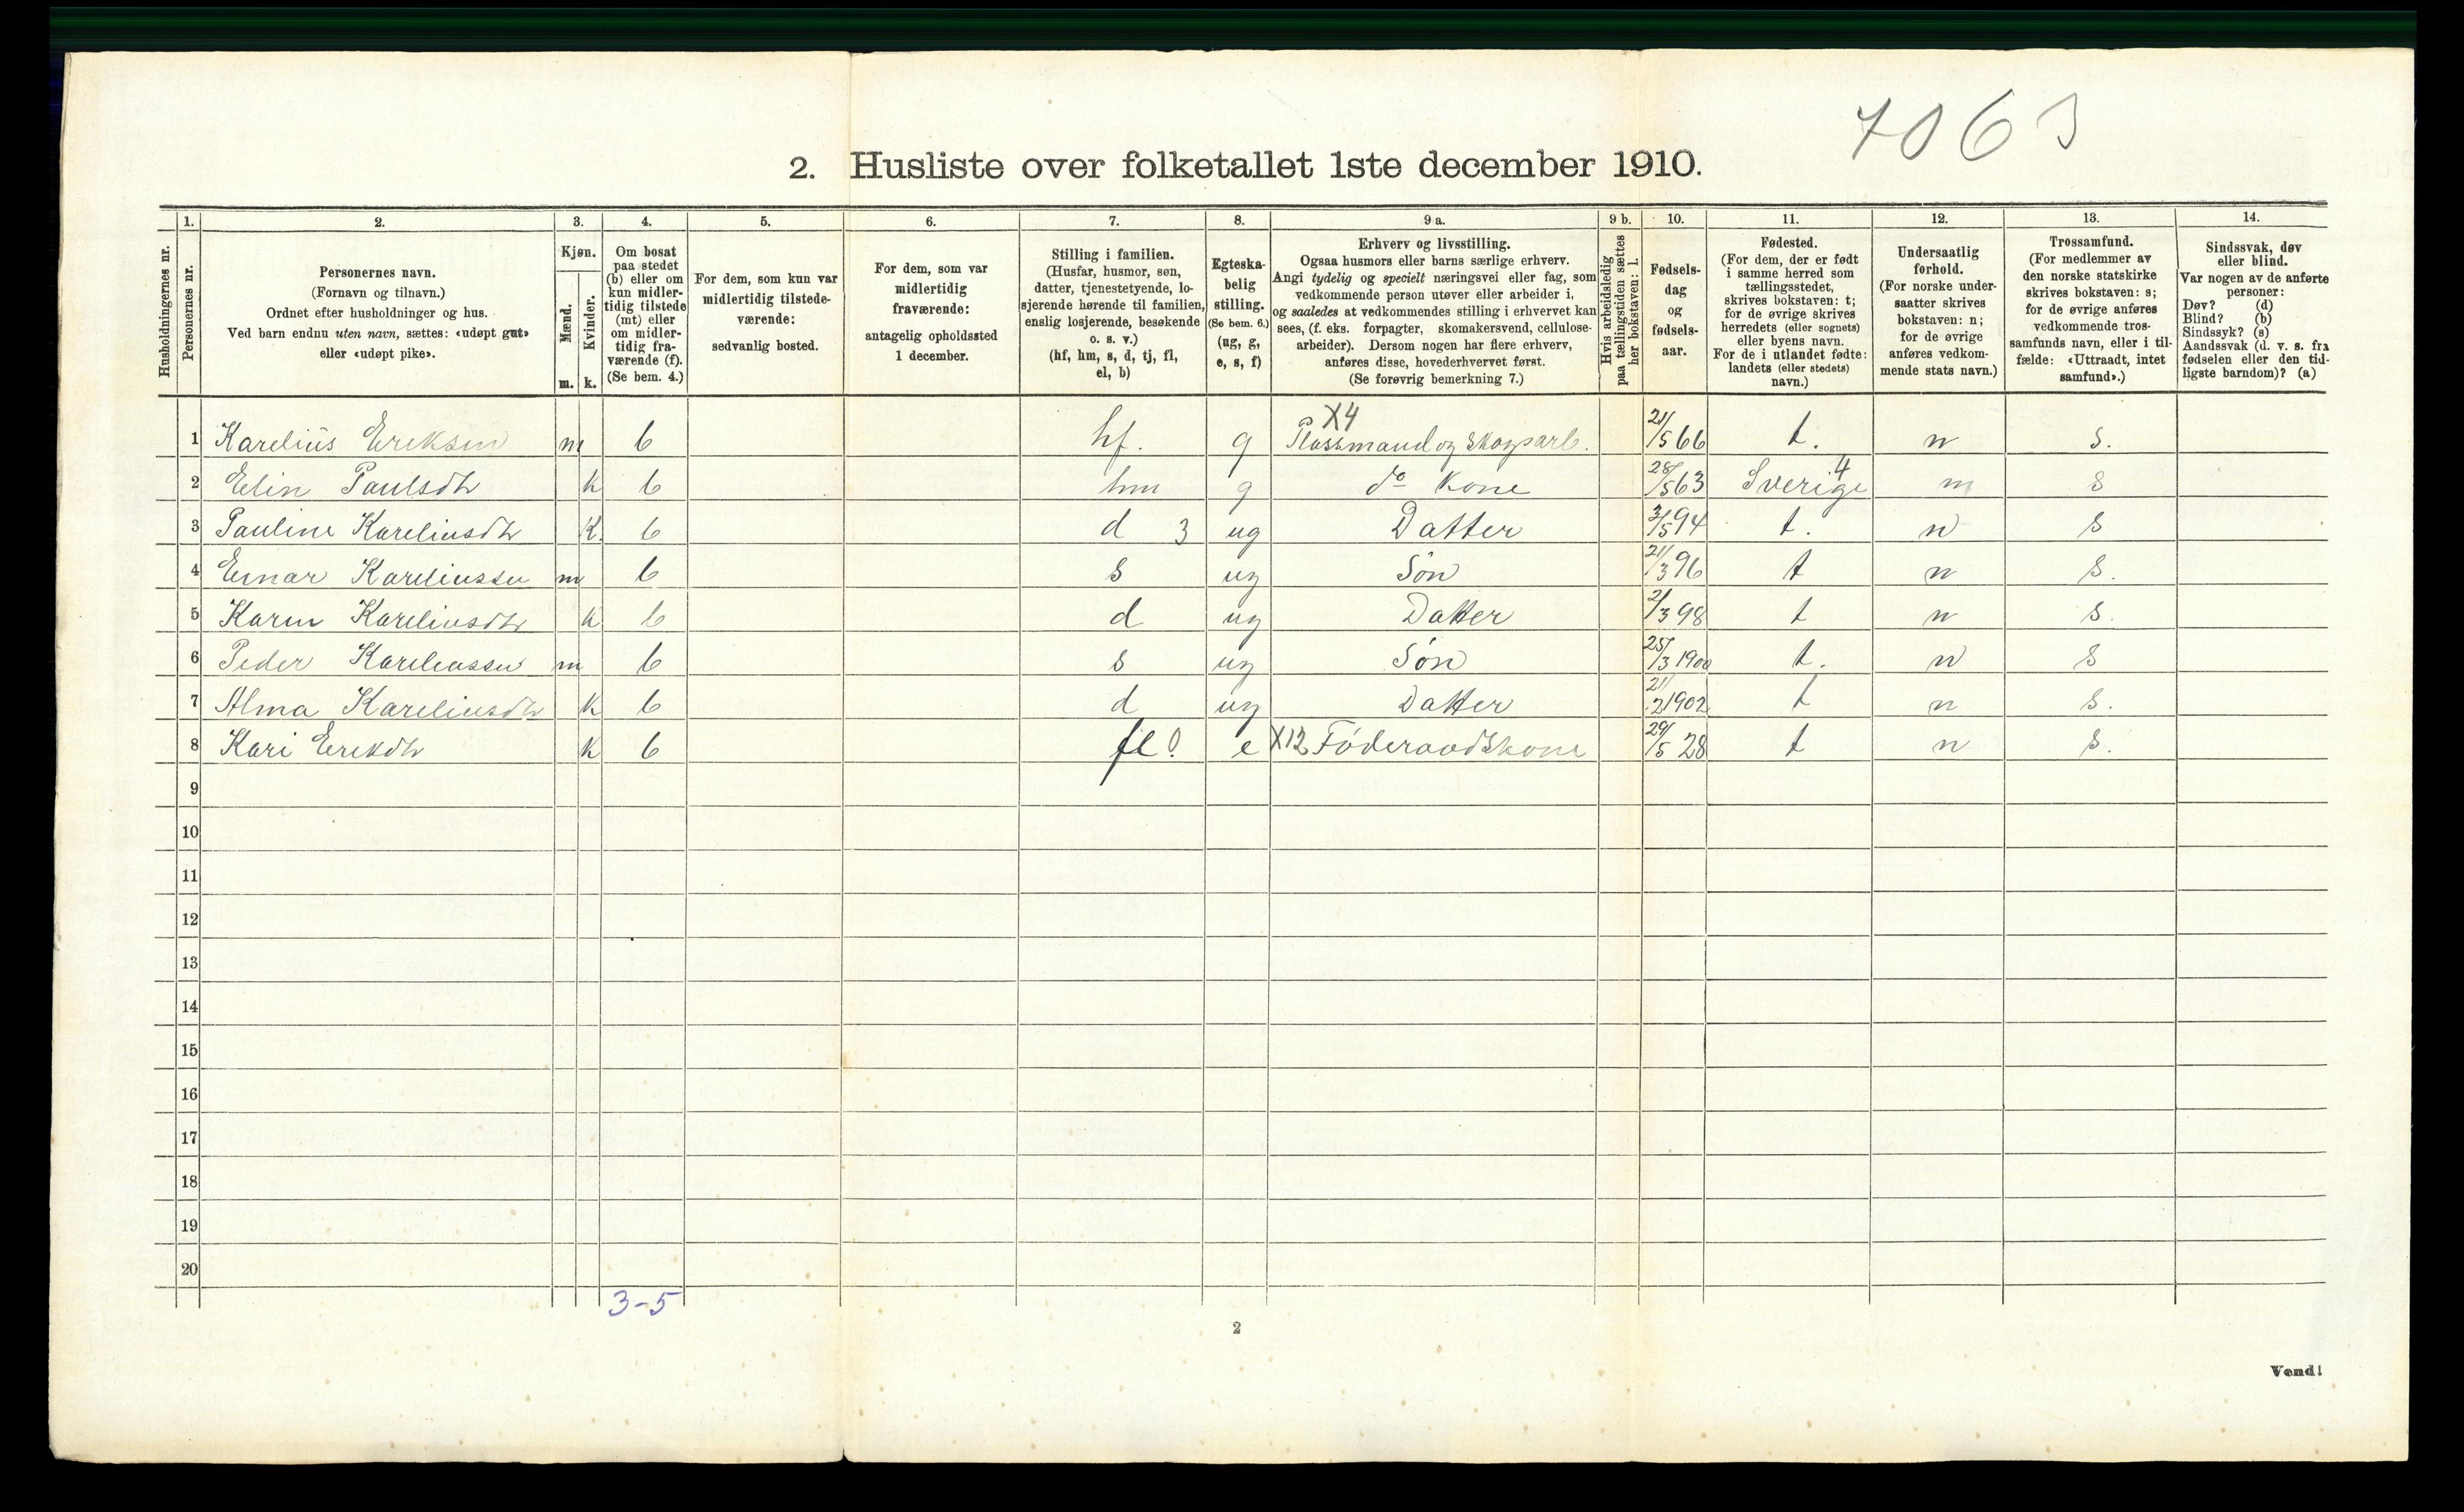 7063
2. Husliste over folketallet 1ste december 1910.
Husholdningernes nr.
1.
Personernes nr.
2.
Personernes navn.
(Fornavn og tilnavn.)
Ordnet efter husholdninger og hus.
Ved barn endnu uten navn, sættes: «udøpt gut»
eller «udøpt pike».
3.
Kjøn.
Mænd.
m.
Kvinder.
k.
4.
Om bosat
paa stedet
(b) eller om
kun midler-
tidig tilstede
(mt) eller
om midler-
tidig fra-
værende (f).
(Se bem. 4.)
5.
For dem, som kun var
midlertidig tilstede-
værende:
sedvanlig bosted.
6.
For dem, som var
midlertidig
fraværende:
antagelig opholdssted
1 december.
7.
Stilling i familien.
(Husfar, husmor, søn,
datter, tjenestetyende, lo-
sjerende hørende til familien,
enslig losjerende, besøkende
o. s. v.)
(hf, hm, s, d, tj, fl,
el, b)
8.
Egteska-
belig
stilling.
(Se bem. 6.)
(ug, g,
e, s, f)
9 a.
Erhverv og livsstilling.
Ogsaa husmors eller barns særlige erhverv.
Angi tydelig og specielt næringsvei eller fag, som
vedkommende person utøver eller arbeider i,
og saaledes at vedkommendes stilling i erhvervet kan
sees, (f. eks. forpagter, skomakersvend, cellulose-
arbeider). Dersom nogen har flere erhverv,
anføres disse, hovederhvervet først.
(Se forøvrig bemerkning 7.)
9 b.
Hvis arbeidsledig
paa tællingstiden sættes
her bokstaven: l.
10.
Fødsels-
dag
og
fødsels-
aar.
11.
Fødested.
(For dem, der er født
i samme herred som
tællingsstedet,
skrives bokstaven: t;
for de øvrige skrives
herredets (eller sognets)
eller byens navn.
For de i utlandet fødte:
landets (eller stedets)
navn.)
12.
Undersaatlig
forhold.
(For norske under-
saatter skrives
bokstaven: n;
for de øvrige
anføres vedkom-
mende stats navn.)
13.
Trossamfund.
(For medlemmer av
den norske statskirke
skrives bokstaven: s;
for de øvrige anføres
vedkommende tros-
samfunds navn, eller i til-
fælde: «Uttraadt, intet
samfund».)
14.
Sindssvak, døv
eller blind.
Var nogen av de anførte
personer:
Døv? (d)
Blind? (b)
Sindssyk? (s)
Aandssvak (d. v. s. fra
fødselen eller den tid-
ligste barndom)? (a)
X4
1 Karelius Eriksen m b hf. g Plassmand og Skogsarb. 21/5 66 t. n s.
2 Elin Paulsdtr k b hm g do Kone 28/5 63 Sverige 4 n s
3 Pauline Kareliusdtr k. b d 3 ug Datter 3/5 94 t. n s
4 Einar Kareliussen m b s ug Søn 21/3 96 t n s.
5 Karen Kareliusdtr k b d ug Datter 2/3 98 t n s.
6 Peder Kareliussen m b s ug Søn 25/3 1900 t. n s
7 Alma Kareliusdtr k b d ug Datter 21/2 1902 t n s.
8 Kari Eriksdtr k b fl 0 e X12 Føderaadskone 29/5 28 t n s.
9
10
11
12
13
14
15
16
17
18
19
20
3-5
2
Vend!